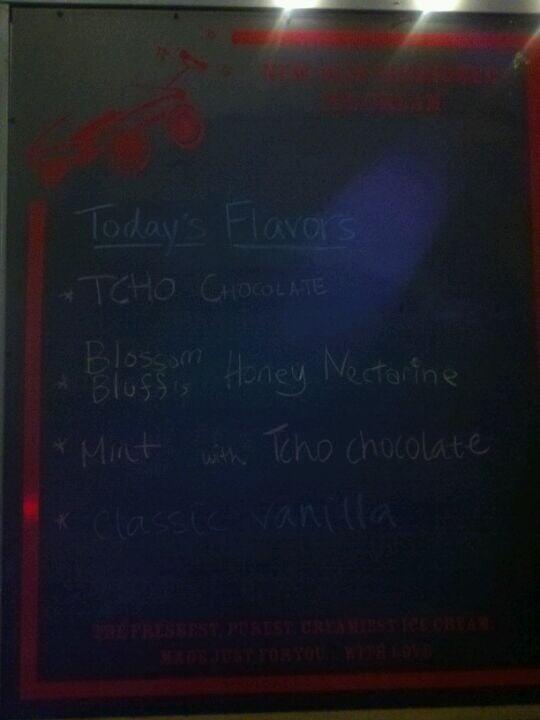 Today's Flavors
* TCHO CHOCOLATE
Blossom
* Bluff's Honey Nectarine
* Mint with Tcho chocolate
* Classic vanilla
THE FRESHEST, PUREST, CREAMIEST ICE CREAM.
MADE JUST FOR YOU... WITH LOVE